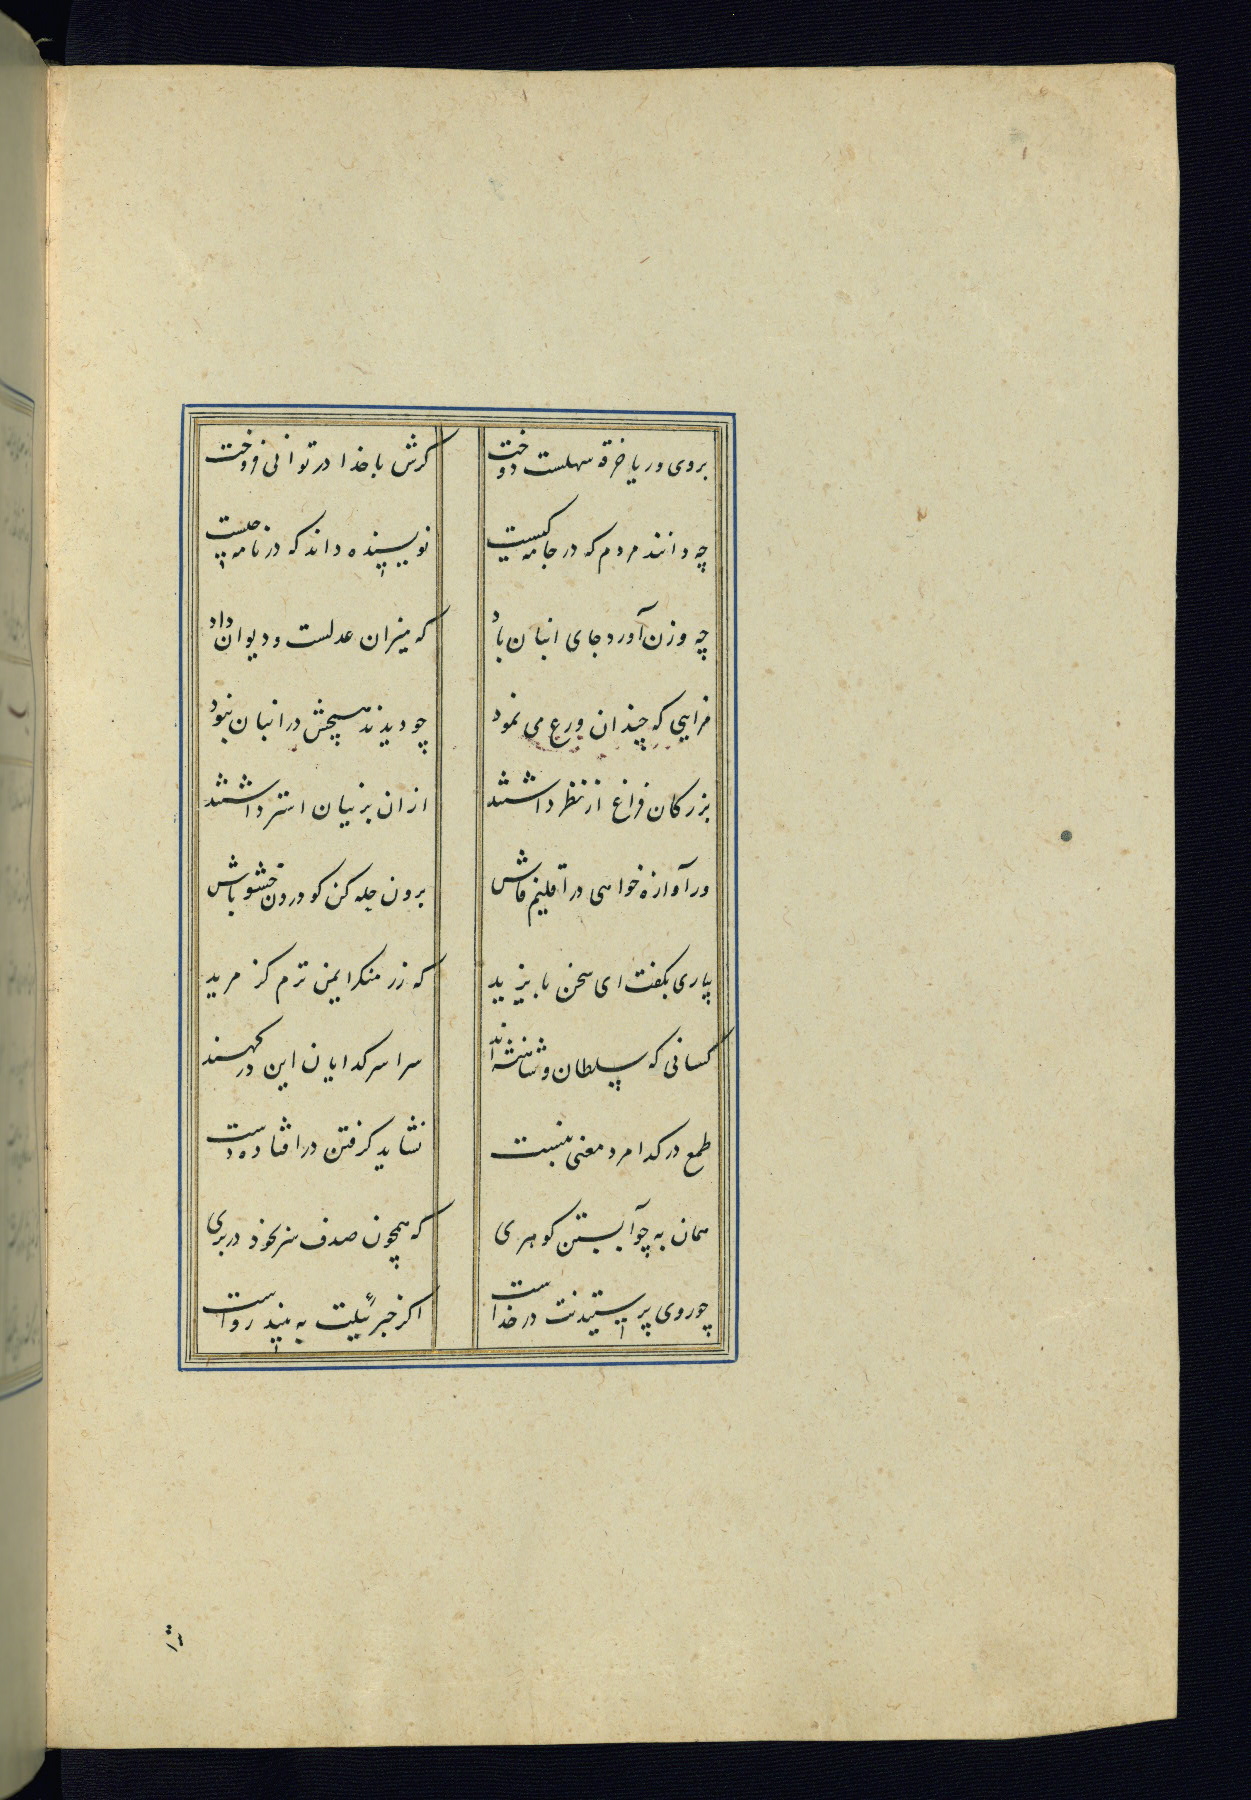 بروی و ریا خرقه سهلست دوخت کرش با خدا در توانی فروخت
چه دانند مردم که در جامه کیست نویسنده داند که در نامه چیست
چه وزن آورد جای انبان باد که میزان عدلست و دیوان داد
مرایی که چندان ورع می نمود چو دیدند هیچش در انبان نبود
بزرکان فراغ از نظر داشتند ازان پرنیان استر داشتند
ور آوازه خواهی در اقلیم فاش برون حله کن کو درون حشو باش
ببازی بکفت ای سخن بایزید که از منکر ایمن ترم کز مرید
کسانی که سلطان و شاهنشه اند سراسر کدایان این در کهند
طمع در کدا مرد معنی نبست نشاید کرفتن در افتاده دست
همان به چو آبستن کوهری که همچون صدف سر بخود در بری
چو روی پرستیدنت در خداست اکر جبرئیلت به بیند رواست